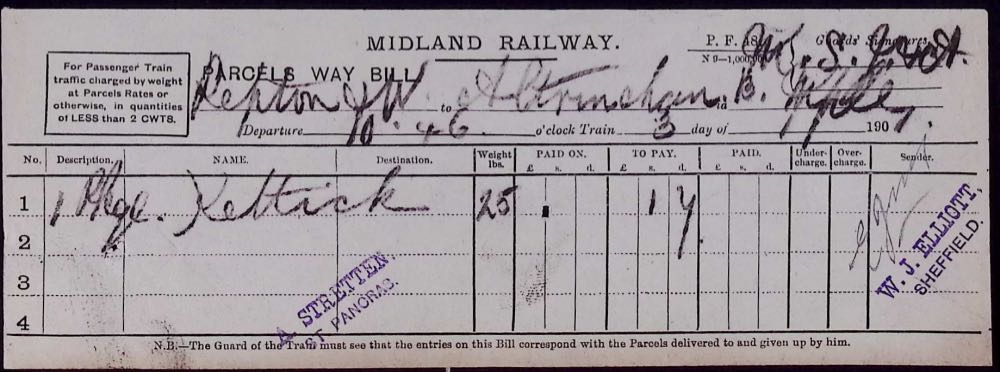 MIDLAND RAILWAY.
For Passenger Train
traffic charged by weight
at Parcels Rates or
otherwise, in quantities
of LESS than 2 CWTS.
P. F. 48
Guards' Signatures.
PARCELS WAY BILL
Repton & W to Altrincham via
Departure 10.46 o'clock Train 3 day of 1907.
No. Description. NAME. Destination. Weight lbs. PAID ON. £ s. d. TO PAY. £ s. d. PAID. £ s. d. Under-charge. Over-charge. Sender.
1 1 Pkge. Kettick 25 1 7
2
3
4
A. STRETTEN.
ST PANCRAS.
W. J. ELLIOTT,
SHEFFIELD.
N.B.—The Guard of the Train must see that the entries on this Bill correspond with the Parcels delivered to and given up by him.